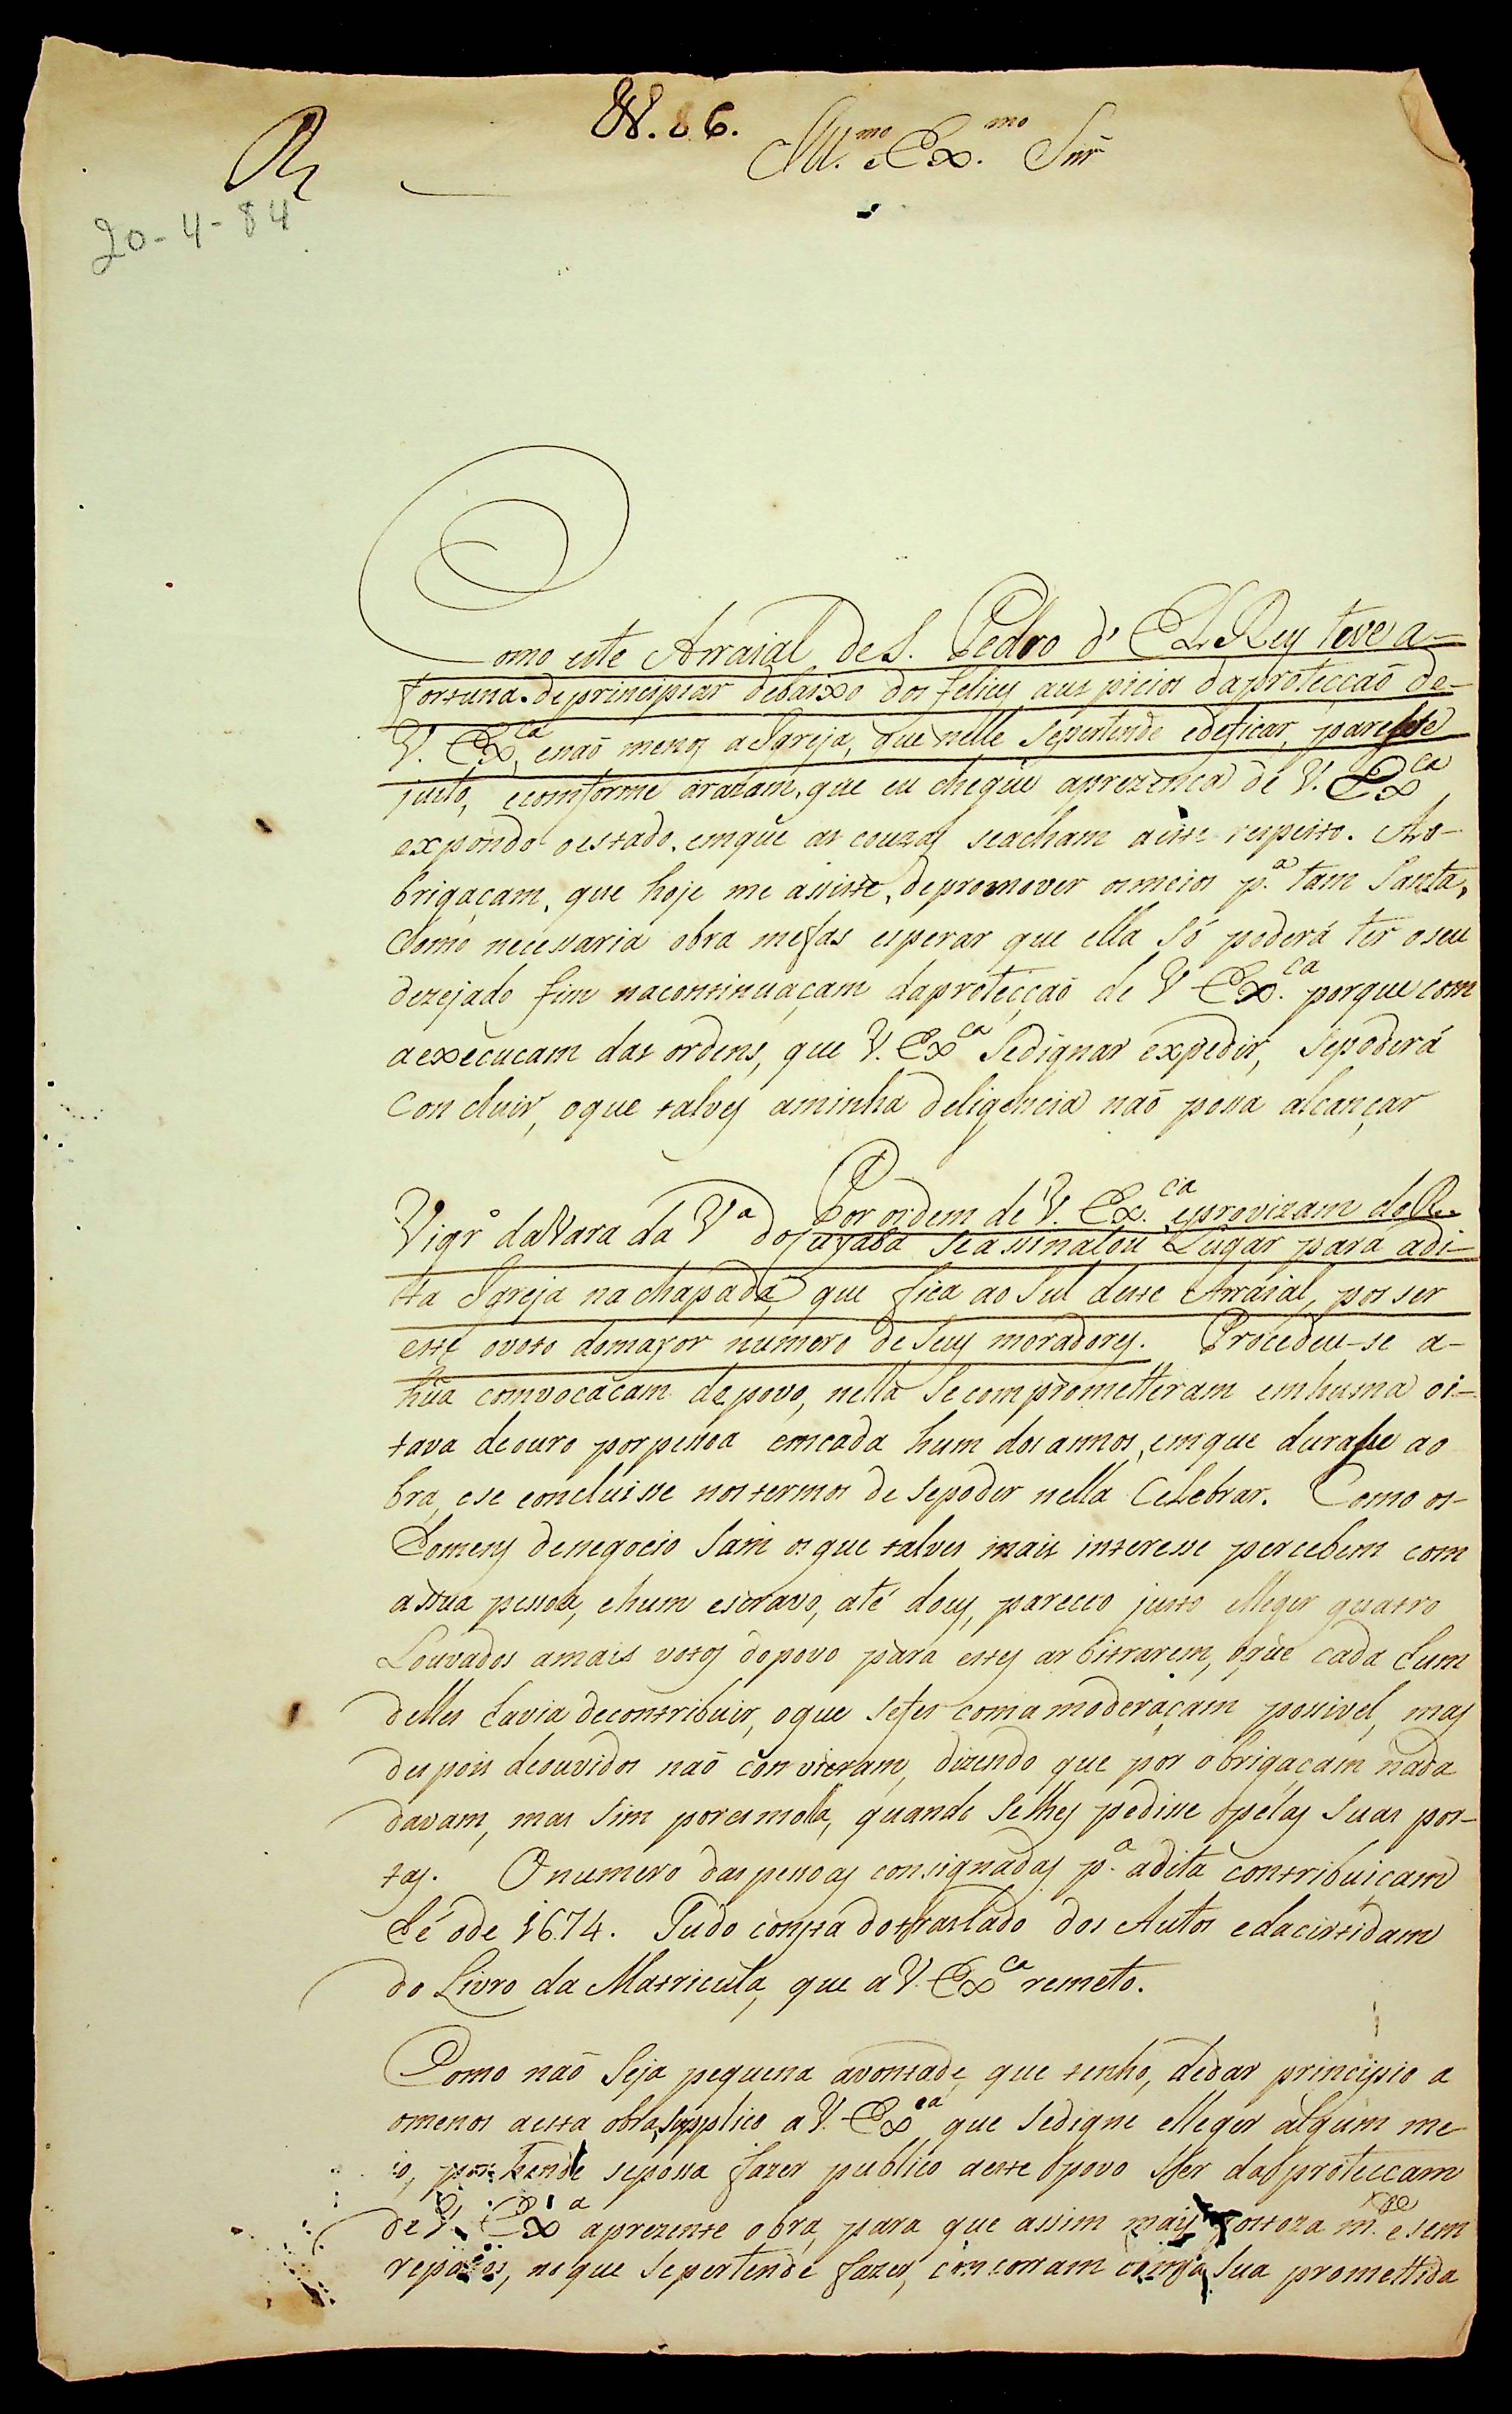 N. 86.
Ill.mo e Ex.mo Snr
R
20-4-84
Como este Arraial de S. Pedro d' El Rey teve a-
fortuna de principiar debaixo dos felices auspicios daprotecçaõ de-
V. Exca, enaõ menos a Igreja, que nelle sepertende edeficar, paresse
justo, econforme arazam, que eu chegue aprezença de V. Exca
expondo oestado, emque as couzas seacham aeste respeito. Ao-
brigaçam, que hoje me assiste, depromover osmeios p.a tam Santa,
Como necessaria obra mefas esperar que ella só poderá ter oseu
dezejado fim nacontinuaçam daprotecçaõ de V Ex.ca porque com
aexecucam das ordens, que V. Exca Sedignar expedir, sepoderá
Concluir, oque talvez aminha deligencia naõ possa alcançar
Por ordem de V. Ex.ca, eprovizam do R.
Vigro daVara da Va do Cuyabá seassinalou Lugar para adi-
tta Igreja nachapada, que fica ao Sul deste Arraial, por ser
este ovoto domayor numero de Seus moradores. Procedeu-se a-
hũa comvocacam depovo, nella Secomprometteram emhuma oi-
tava deouro porpessoa emcada hum dosannos, emque durasse ao
bra, ese concluisse nostermos de sepoder nella Celebrar. Como os-
homens denegocio Sam osque talves mais interesse percebem com
asua pessoa, ehum escravo, até dous, pareceo justo elleger quatro
Louvados amais votos dopovo para estes arbitrarem, oque cada hum
delles havia decontribuir, oque sefes coma moderaçam possivel, mas
despois deouvidos naõ convieram, dizendo que por obrigaçam nada
davam, mas sim poresmolla, quando Selhes pedisse pélas suas por-
tas. Onumero daspessoas consignadas p.a adita contribuicam
hé ode 1674. Tudo consta dotraslado dos Autos edacertidam
do Livro da Matricula, que a V. Exca remeto.
Como naõ Seja pequena avontade, que tenho, dedar principio a
omenos aesta obra, supplico a V. Exca que Sedigne elleger algum me
io, por honde sepossa fazer publico aeste povo sser daproteccam
de V. Exa aprezente obra, para que assim mais gostoza m.te esem
reparos, noque sepertende fazer, concorram coma Sua promettida